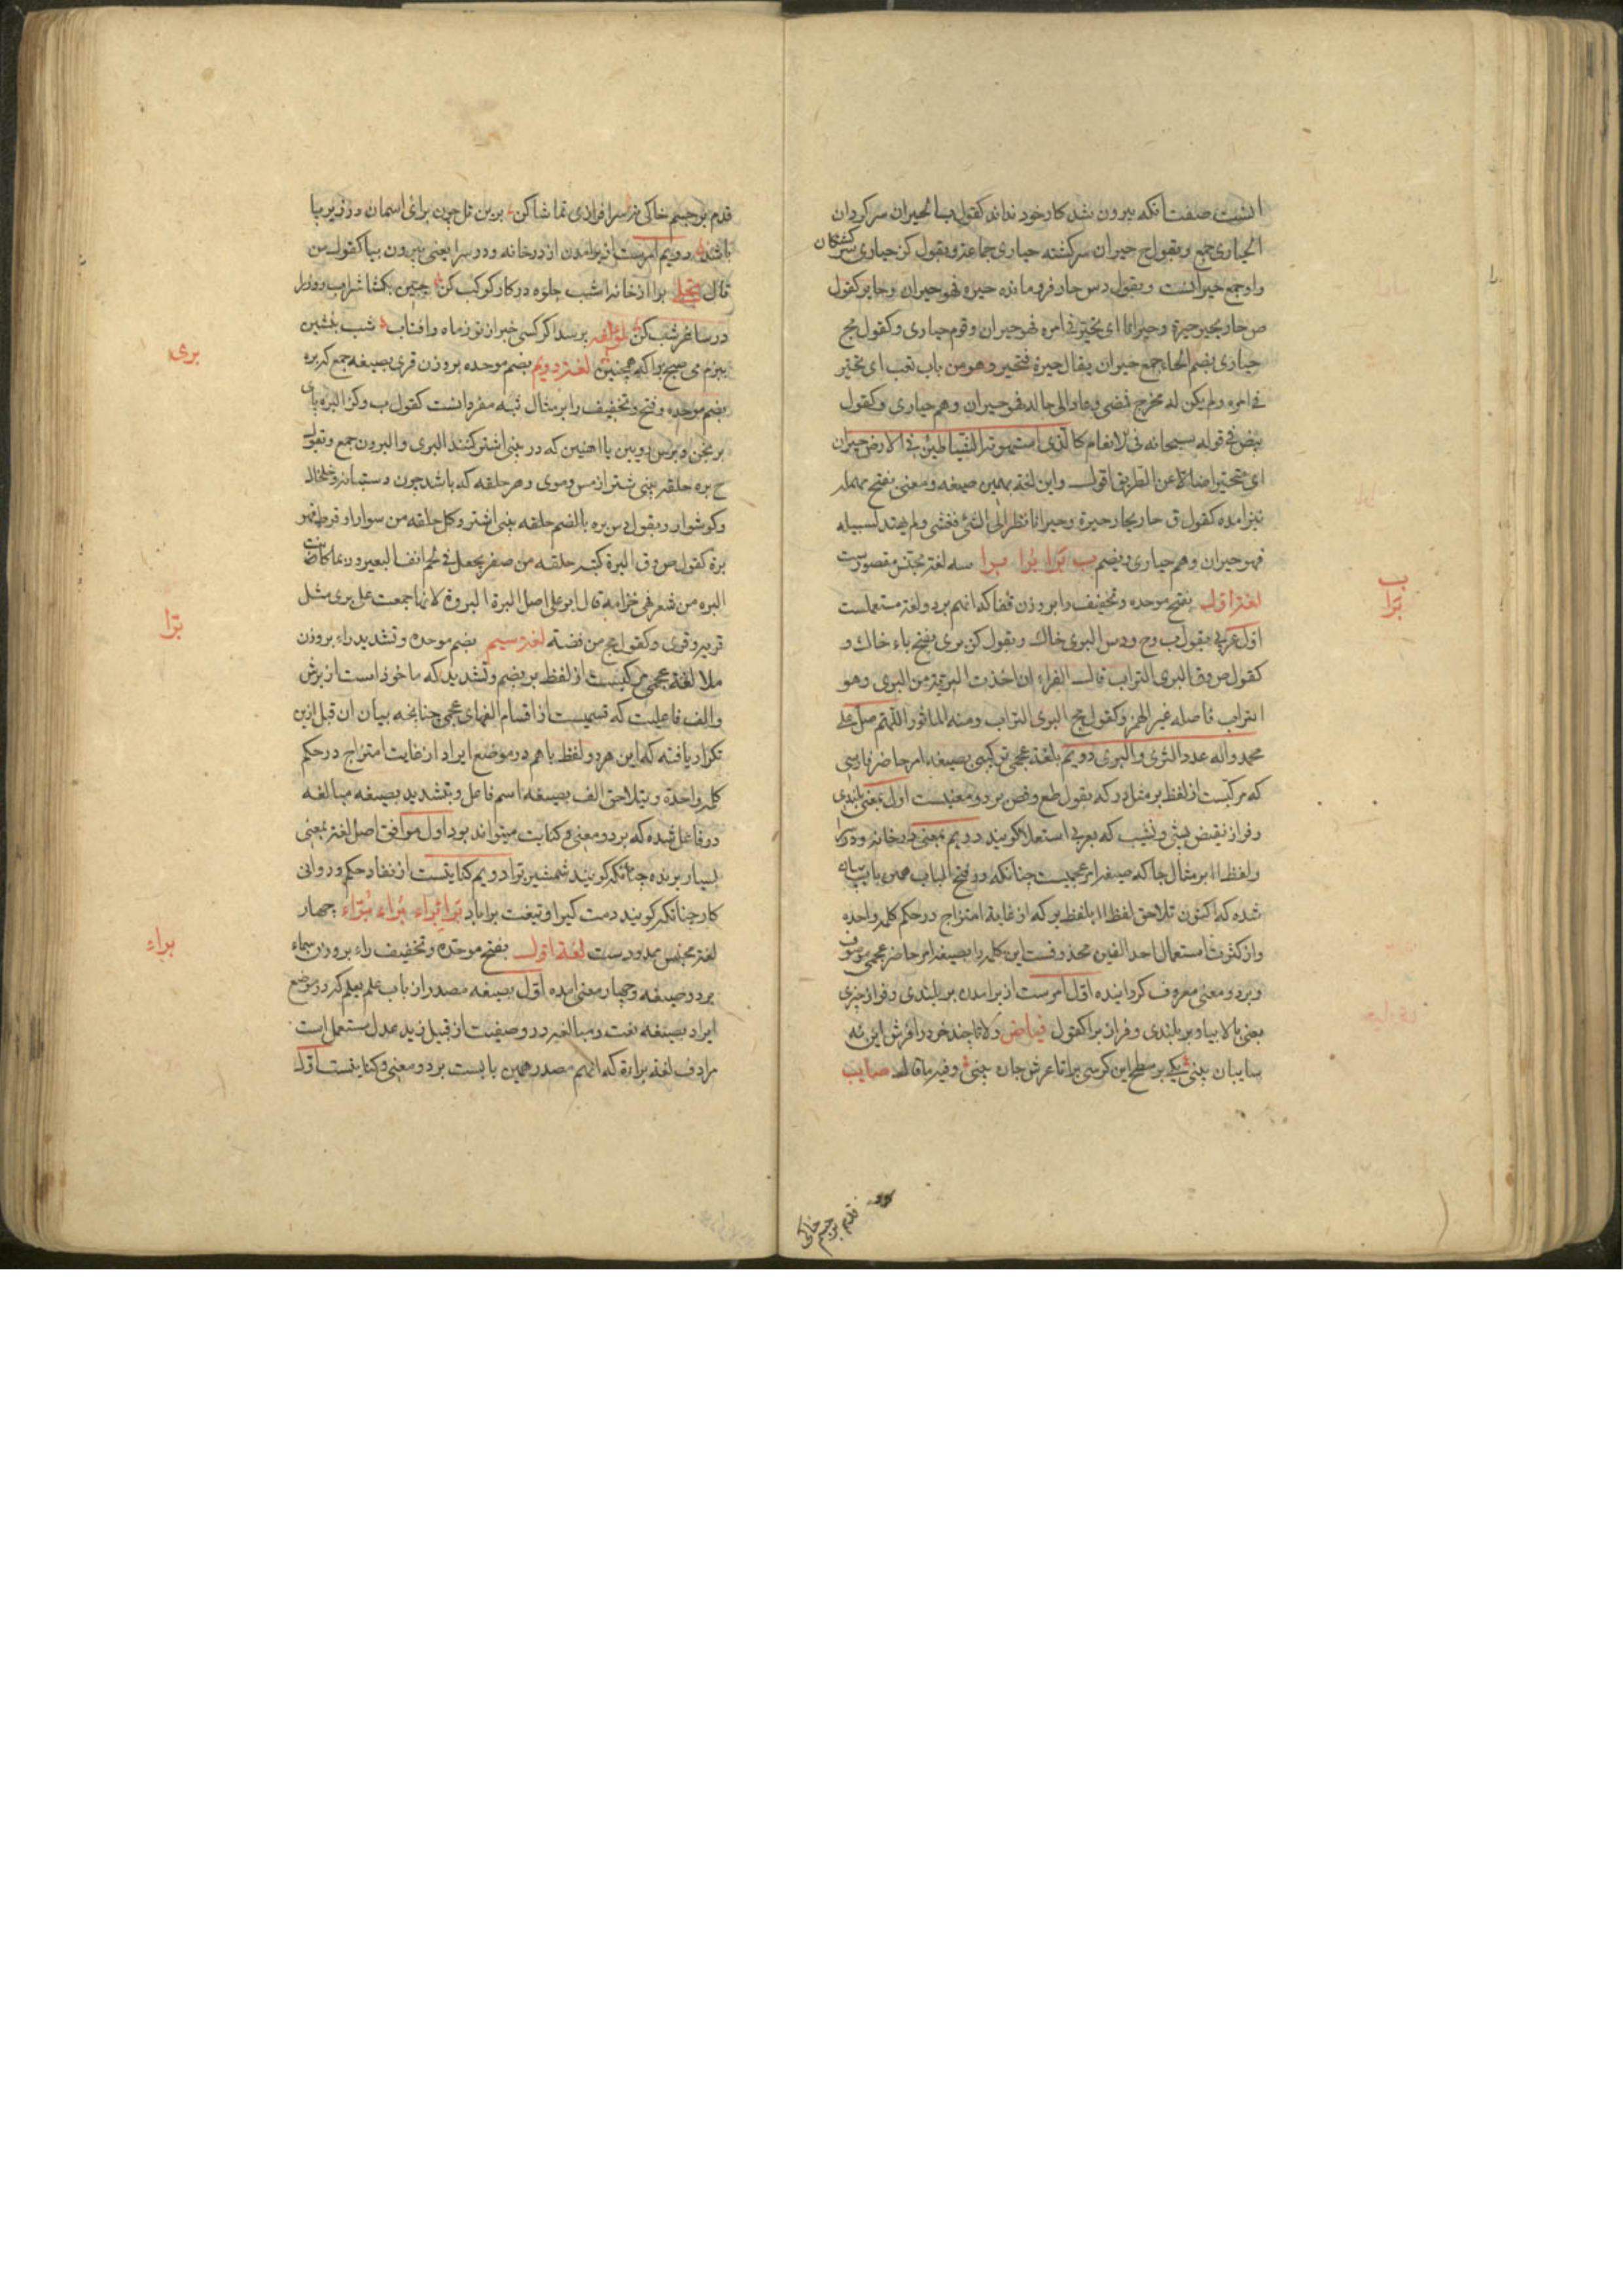 انست صفت انکه بیرون شد کار خود نداند کقول بسا الحیران سرکردان
الحیاری جمع و بقول ح حیران سرکشته حیاری جماعة و بقول کز حیاری سرکشتکان
واو جمع حیرانست و بقول دس حار فرو مانده حیره فهو حیران و حایر کقول
ص حار یحیر حیرة وحیرانا ای تحیّر فی امره فهو حیران وقوم حیاری و کقول مج
حیاری بضم الحاء جمع حیران یقال حیرة فتحیر و هو من باب تعب ای تحیّر
فی امره ولم یکن له مخرج فمضی وعاد الی حاله فهو حیران وهم حیاری و کقول
بیض فی قوله سبحانه فی الانعام کالذی استهوته الشیاطین فی الارض حیران
ای متحیّرا ضالا عن الطریق اقول و این لغة بهمین صیغه و معنی بفتح مهمله
نیز امده کقول ق حار یحار حیرة وحیرانا نظر الی الشئ فغشی ولم یهتد لسبیله
فهو حیران وهم حیاری و بضم ب بَرَا بُرا برا سه لغة مجتنس مقصورست
لغة اول بفتح موحده و تخفیف را بر وزن قفا که انهم بر دو لغة مستعملست
اول عربی بقول ب وح ودس البری خاك و بقول کز بری بفتح باء خاك و
کقول ص وق البری التراب قال الفراء ان اخذت البریة من البری وهو
التراب فاصله غیر الهمز و کقول مج البری التراب ومنه الماثور اللهم صل علی
محمد واله عدد الثری والبری دویم بلغة عجمی ترکیبی بصیغه امر حاضر فارسی
که مرکبست از لفظ بر مثل در که بقول طع وفس بر دو معنیست اول بمعنی بلندی
و فراز نقیض پستی و نشیب که بعربی استعلا کویند دویم بمعنی در خانه و درکاه
ولفظ اا بر مثال جا که صیغه امر عجمیست چنانکه در فتح الباب همین باب بیان
شده که اکنون تلاحق لفظ اا بلفظ بر که از غایة امتزاج در حکم کلمه واحده
واز کثرت استعمال احد الفین محذوفست این کلمه را بصیغه امر حاضر عجمی موصوف
وبر دو معنی معروف کردانیده اول امرست از برامدن بر بلندی و فراز چیزی
یعنی بالا بیا و بر بلندی و فراز برا کقول فیاض دلا تا چند خود را فرش این نه
سایبان بینی یکی بر سطح این کرسی برا تا عرش جان بینی وفیه ما قال صایب
قدم بر جسم خاکی
برا
قدم بر جسم خاکی نه سرافرازی تماشا کن برین تل چون برائی اسمان در زیر پا
باشد دویم امرست از برامدن از در خانه و در سرا یعنی بیرون بیا کقول من
قال تجلی برا از خانه امشب جلوه در کار کوکب کن جبین بکشا شراب روز را
در ساغر شب کن لمؤلفه برسد اکر کسی خبر از تو ز ماه و افتاب شب بنشین
ببزم می صبح برا که همچنین لغة دویم بضم موحده بر وزن قری بصیغه جمع که بره
بضم موحده و فتح و تخفیف را بر مثال ثبه مفرد انست کقول ب وکز البره بای
برنجن و برس روبین یا اهنین که در بینی اشتر کنند البری و البرون جمع و بقول
ح بره حلقه بینی شتر از مس و موی و هر حلقه که باشد چون دستیانه و خلخال
وکوشوار و بقول دس بره بالضم حلقه بینی اشتر وکل حلقه من سوار او قرط فهو
برة کقول ص وق البرة کثبه حلقه من صفر یجعل فی لحم انف البعیر و ربما کانت
البره من شعر فهی خزامة قال ابو علی اصل البرة البروة لانها جمعت علی بری مثل
قریه و قری و کقول مج من فضة لغة سیم بضم موحده و تشدید راء بر وزن
ملا لغة عجمی مرکبست از لفظ بر بضم و تشدید که ماخوذ است از برش
والف فاعلیت که قسمیست از اقسام الفهای عجمی چنانچه بیان ان قبل ازین
تکرار یافته که این هر دو لفظ باهم در موضع ایراد از غایت امتزاج در حکم
کلمه واحدة و بتلاحق الف بصیغه اسم فاعل و بتشدید بصیغه مبالغه
در فاعل شده که بر دو معنی و کنایت میتواند بود اول موافق اصل لغة بمعنی
بسیار برنده چنانکه کویند شمشیر برا دویم کنایتست از نفاد حکم و روانی
کار چنانکه کویند دمت کیرا و تیغت برا باد بَراء بِراء بُراء بُرّاء چهار
لغة مجنس ممدودست لغة اول بفتح موحده و تخفیف راء بر وزن سماء
بر دو صیغه و چهار معنی امده اول بصیغه مصدر از باب علم یعلم که در موضع
ایراد بصیغه نعت و مبالغه در وصفیت از قبیل زید عدل مستعمل است
مرادف لغة براءة که انهم مصدر همین بابست بر دو معنی و کنایتست اول
بری
برّا
براء